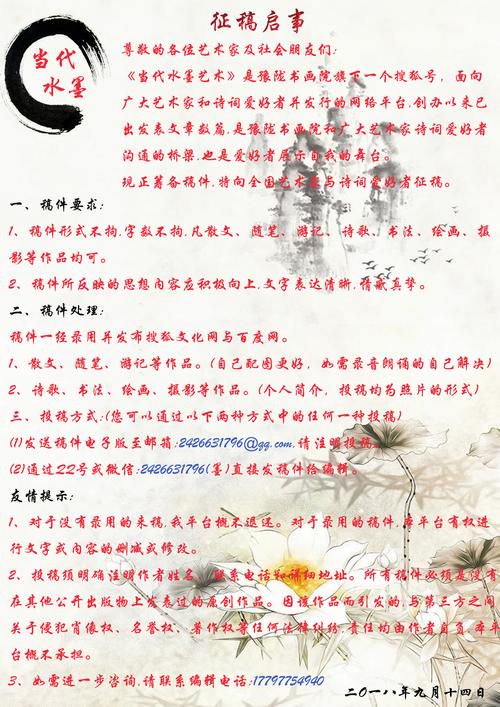 征稿启事
当代
水墨
尊敬的各位艺术家及社会朋友们:
《当代水墨艺术》是豫陇书画院旗下一个搜狐号，面向
广大艺术家和诗词爱好者并发行的网络平台,创办以来已
出发表文章数篇,是豫陇书画院和广大艺术家诗词爱好者
沟通的桥梁,也是爱好者展示自我的舞台。
现正筹备稿件,特向全国艺术家与诗词爱好者征稿。
一、稿件要求:
1、稿件形式不拘,字数不拘,凡散文、随笔、游记、诗歌、书法、绘画、摄
影等作品均可。
2、稿件所反映的思想内容应积极向上,文字表达清晰,情感真挚。
二、稿件处理:
稿件一经录用并发布搜狐文化网与百度网。
1、散文、随笔、游记等作品。(自己配图更好，如需录音朗诵的自己解决)
2、诗歌、书法、绘画、摄影等作品。(个人简介，投稿均为照片的形式)
三、投稿方式:(您可以通过以下两种方式中的任何一种投稿)
(1)发送稿件电子版至邮箱:2426631796@qq.com,请注明投稿。
(2)通过QQ号或微信:2426631796(墨)直接发稿件给编辑。
友情提示:
1、对于没有录用的来稿,我平台概不退还。对于录用的稿件,本平台有权进
行文字或内容的删减或修改。
2、投稿须明确注明作者姓名、联系电话和详细地址。所有稿件必须是没有
在其他公开出版物上发表过的原创作品。因该作品而引发的,与第三方之间
关于侵犯肖像权、名誉权、著作权等任何法律纠纷,责任均由作者自负,本平
台概不承担。
3、如需进一步咨询,请联系编辑电话:17797754940
二〇一八年九月十四日